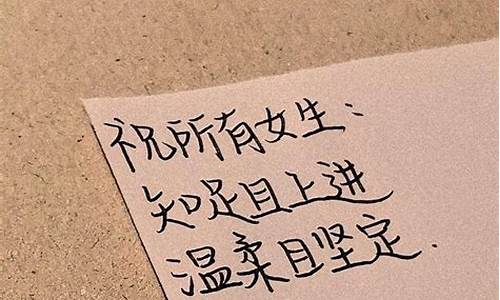 祝所有女生:
知足且上进
温柔且坚定.